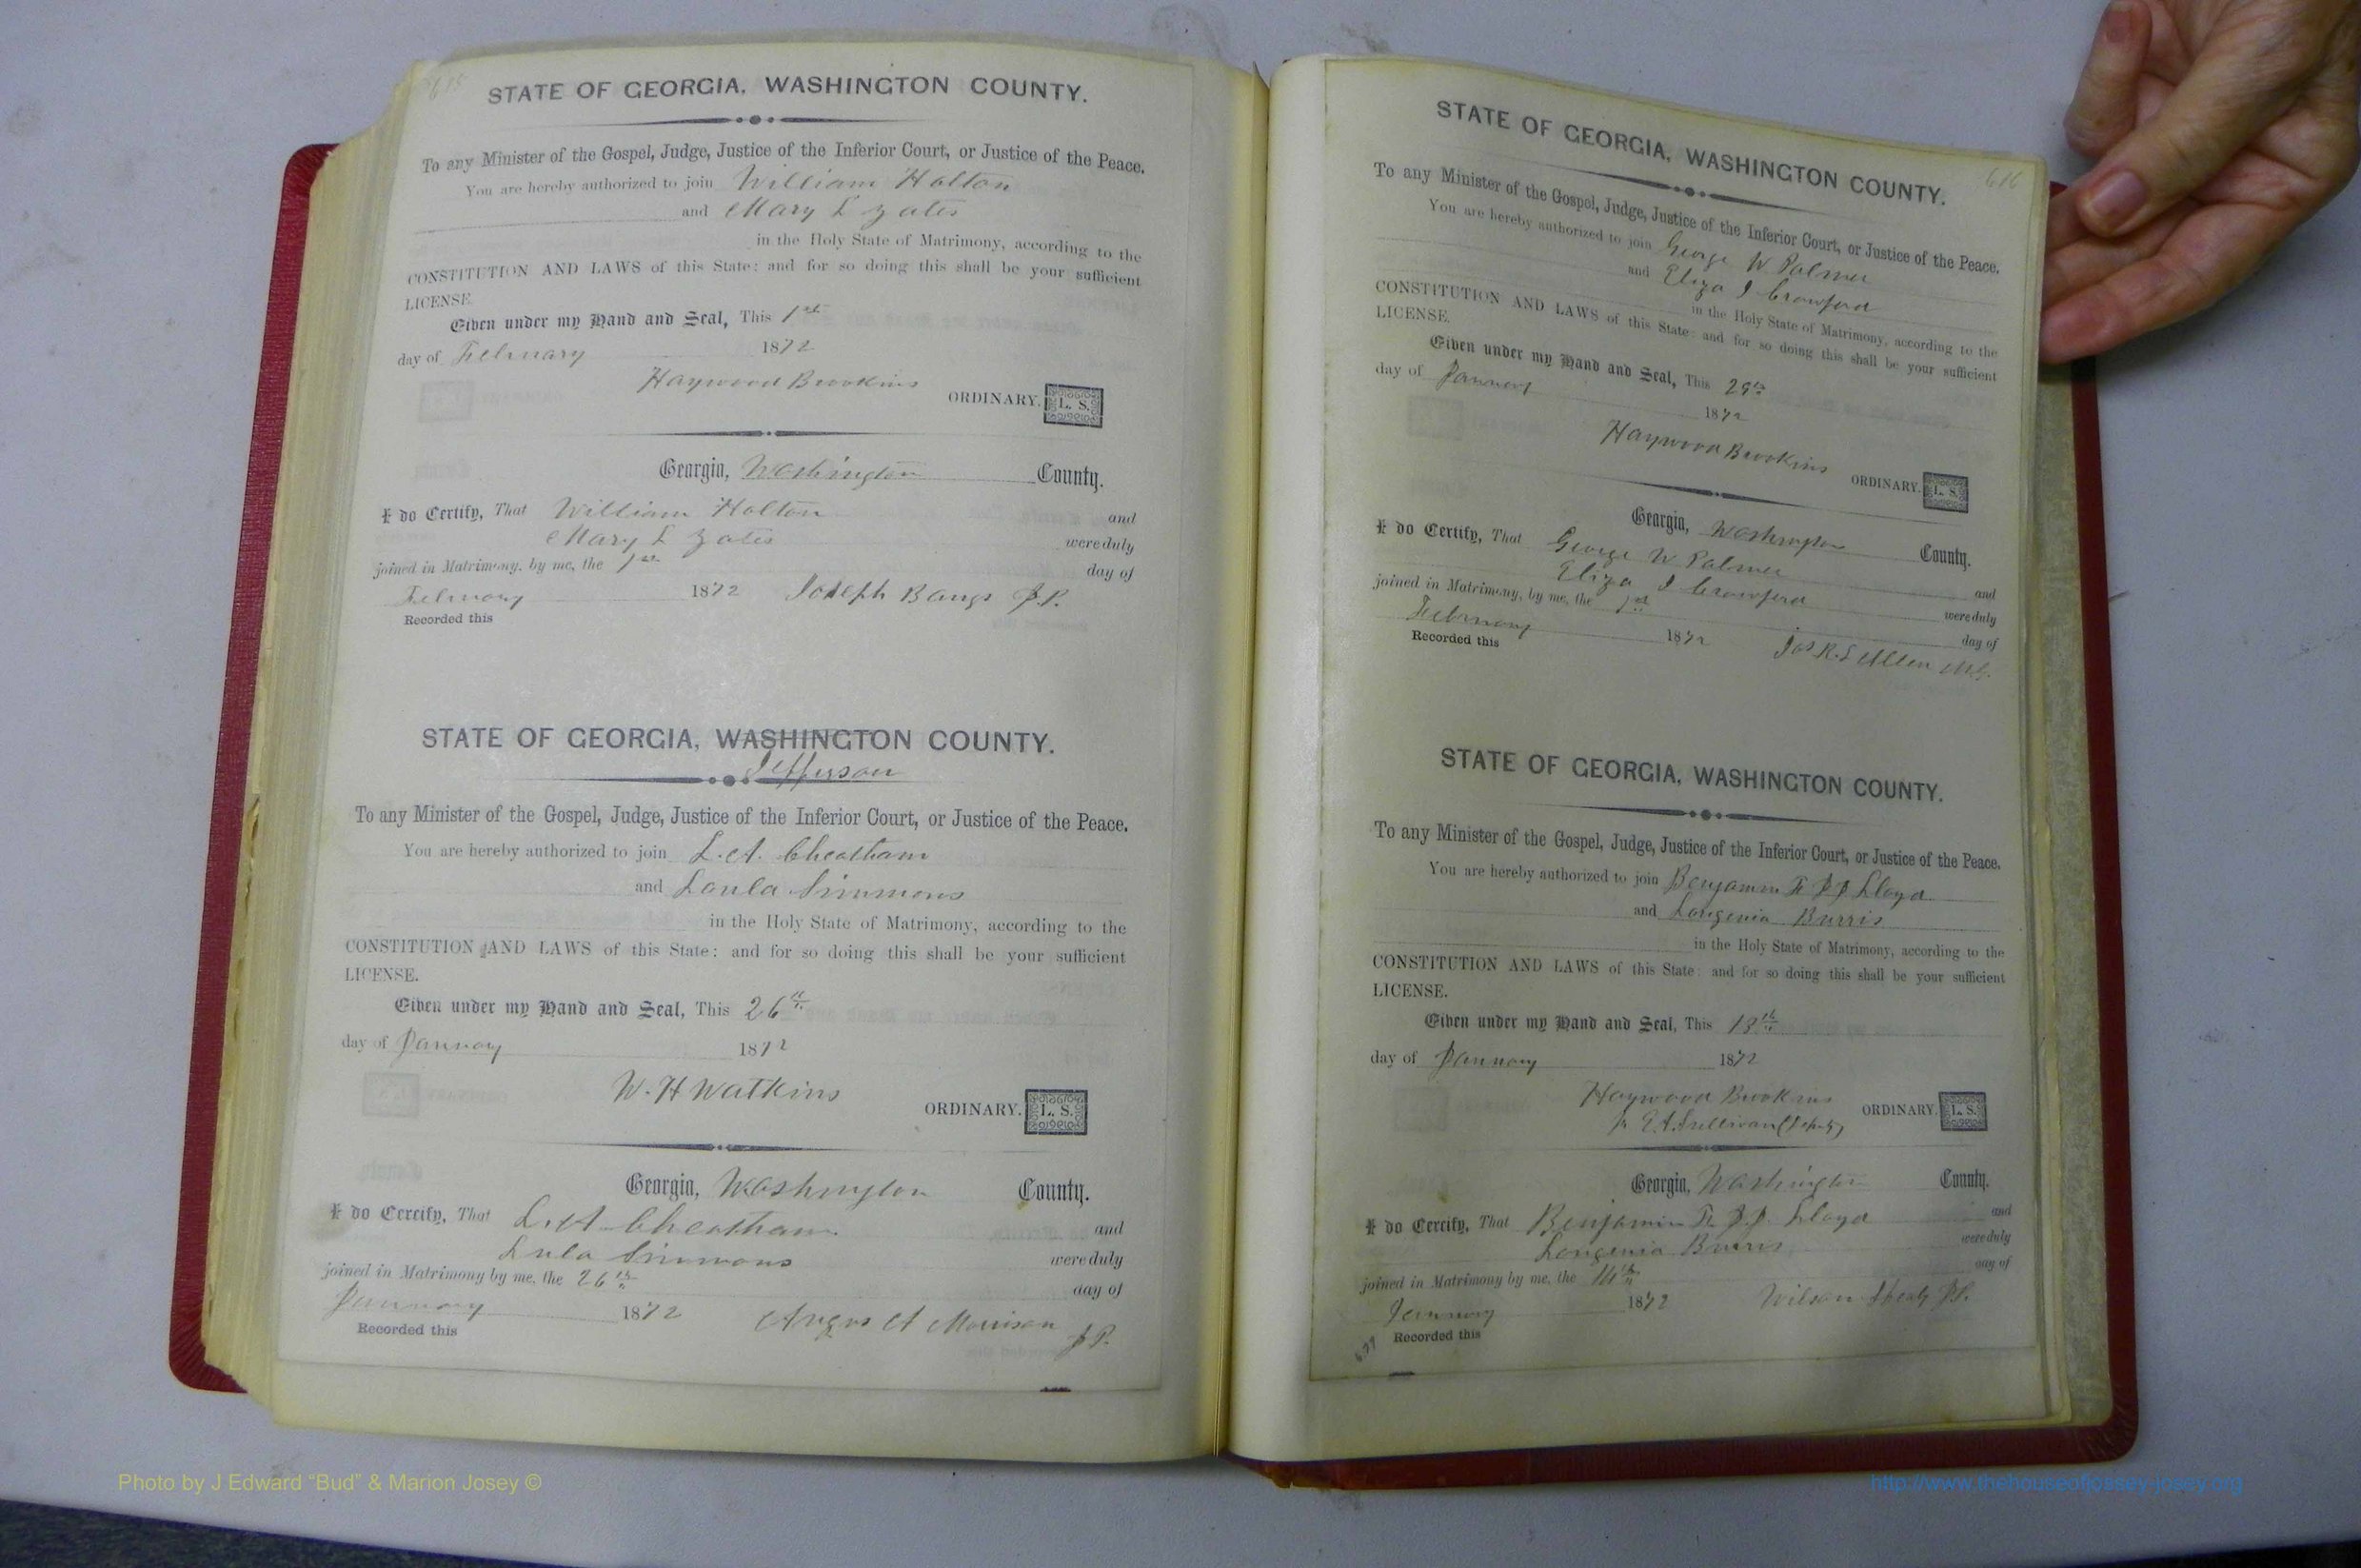 STATE OF GEORGIA, WASHINGTON COUNTY.
To any Minister of the Gospel, Judge, Justice of the Inferior Court, or Justice of the Peace.
You are hereby authorized to join William Holton
and Mary L Yates
in the Holy State of Matrimony, according to the
CONSTITUTION AND LAWS of this State: and for so doing this shall be your sufficient
LICENSE.
Given under my Hand and Seal, This 1st
day of February 1872
Haywood Brookins
ORDINARY. L. S.
Georgia, Washington County.
I do Certify, That William Holton and
Mary L Yates were duly
joined in Matrimony, by me, the 1st day of
February 1872 Joseph Bangs J.P.
Recorded this
STATE OF GEORGIA, WASHINGTON COUNTY.
Jefferson
To any Minister of the Gospel, Judge, Justice of the Inferior Court, or Justice of the Peace.
You are hereby authorized to join L. A. Cheatham
and Loula Simmons
in the Holy State of Matrimony, according to the
CONSTITUTION AND LAWS of this State: and for so doing this shall be your sufficient
LICENSE.
Given under my Hand and Seal, This 26th
day of January 1872
W. H Watkins
ORDINARY. L. S.
Georgia, Washington County.
I do Certify, That L. A Cheatham and
Lula Simmons were duly
joined in Matrimony by me, the 26th day of
January 1872 Angus A Morrison
J P.
Recorded this
616
STATE OF GEORGIA, WASHINGTON COUNTY.
To any Minister of the Gospel, Judge, Justice of the Inferior Court, or Justice of the Peace.
You are hereby authorized to join George W Palmer
and Eliza J Crawford
in the Holy State of Matrimony, according to the
CONSTITUTION AND LAWS of this State: and for so doing this shall be your sufficient
LICENSE.
Given under my Hand and Seal, This 29th
day of January 1872
Haywood Brookins
ORDINARY. L. S.
Georgia, Washington County.
I do Certify, That George W Palmer and
Eliza J Crawford were duly
joined in Matrimony, by me, the 1st day of
February 1872 Allen
Recorded this
STATE OF GEORGIA, WASHINGTON COUNTY.
To any Minister of the Gospel, Judge, Justice of the Inferior Court, or Justice of the Peace.
You are hereby authorized to join Benjamin F J J Lloyd
and Longenia Burris
in the Holy State of Matrimony, according to the
CONSTITUTION AND LAWS of this State: and for so doing this shall be your sufficient
LICENSE.
Given under my Hand and Seal, This 13th
day of January 1872
Haywood Brookins
E. A. Sullivan (Deputy) ORDINARY. L. S.
Georgia, Washington County.
I do Certify, That Benjamin F. J. J. Lloyd and
Longenia Burris were duly
joined in Matrimony by me, the 14th day of
January 1872 Wilson J P.
Recorded this
Photo by J Edward "Bud" & Marion Josey ©
http://www.thehouseofjossey-josey.org